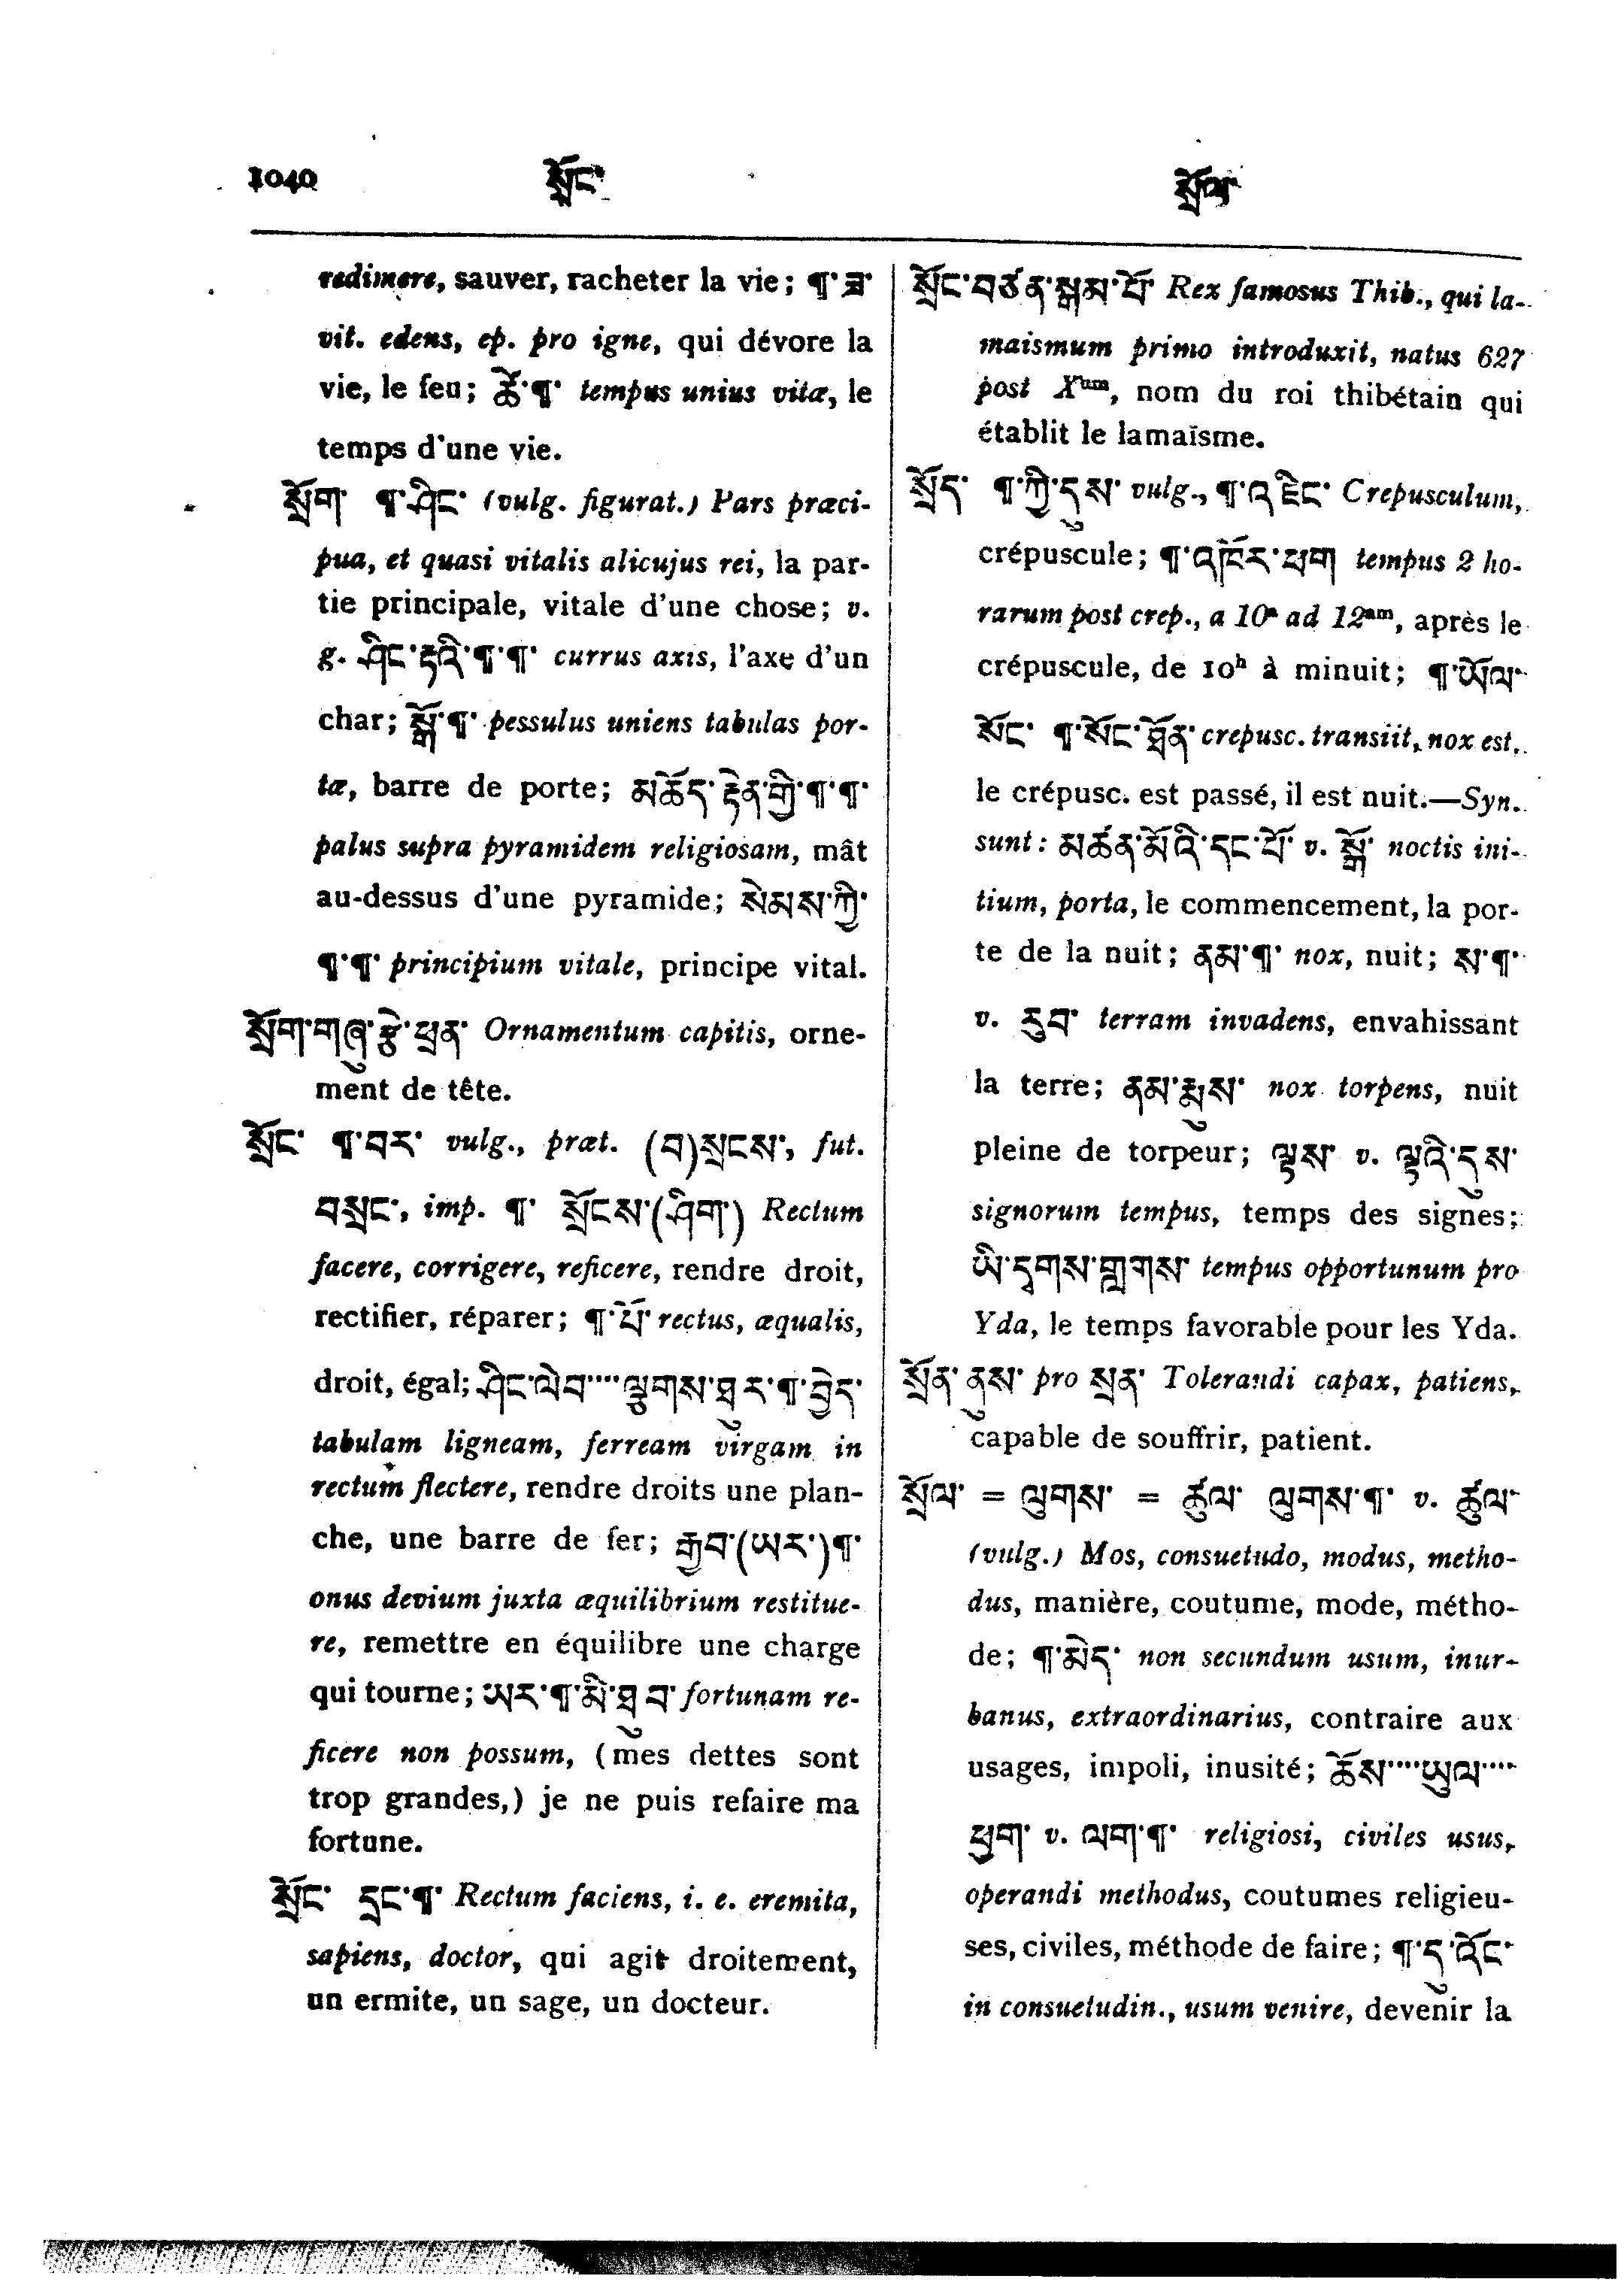 1040 སྲོང་ སྲོལ་
redimere, sauver, racheter la vie; ¶་ཟ་
vit. edens, ep. pro igne, qui dévore la
vie, le feu; ཚེ་¶་ tempus unius vitæ, le
temps d'une vie.
སྲོག་ ¶་ཤིང་ (vulg. figurat.) Pars præci-
pua, et quasi vitalis alicujus rei, la par-
tie principale, vitale d'une chose; v.
g. ཤིང་རྟའི་¶་¶་ currus axis, l'axe d'un
char; སྒོ་¶་ pessulus uniens tabulas por-
tæ, barre de porte; མཆོད་རྟེན་གྱི་¶་¶་
palus supra pyramidem religiosam, mât
au-dessus d'une pyramide; སེམས་ཀྱི་
¶་¶་ principium vitale, principe vital.
སྲོག་གཞུ་རྩེ་ཕྲན་ Ornamentum capitis, orne-
ment de tête.
སྲོང་ ¶་བར་ vulg., præt. (བ)སྲངས་, fut.
བསྲང་, imp. ¶་ སྲོངས་(ཤིག་) Rectum
facere, corrigere, reficere, rendre droit,
rectifier, réparer; ¶་པོ་ rectus, æqualis,
droit, égal; ཤིང་ལེབ་་་་་ལྕགས་ཐུར་¶་བྱེད་
tabulam ligneam, ferream virgam in
rectum flectere, rendre droits une plan-
che, une barre de fer; རྒྱབ་(ཡར་)¶་
onus devium juxta æquilibrium restitue-
re, remettre en équilibre une charge
qui tourne; ཡར་¶་མི་ཐུབ་ fortunam re-
ficere non possum, (mes dettes sont
trop grandes,) je ne puis refaire ma
fortune.
སྲོང་ དྲང་¶་ Rectum faciens, i. e. eremita,
sapiens, doctor, qui agit droitement,
un ermite, un sage, un docteur.
སྲོང་བཙན་སྒམ་པོ་ Rex famosus Thib., qui la-
maismum primo introduxit, natus 627
post Xum, nom du roi thibétain qui
établit le lamaïsme.
སྲོད་ ¶་ཀྱི་དུས་ vulg., ¶་འཇིང་ Crepusculum,
crépuscule; ¶་འཁོར་ཕག tempus 2 ho-
rarum post crep., a 10a ad 12am, après le
crépuscule, de 10h à minuit; ¶་ཡོལ་
སོང་ ¶་སོང་ཐོན་ crepusc. transiit, nox est,
le crépusc. est passé, il est nuit.—Syn.
sunt: མཚན་མོའི་དང་པོ་ v. སྒོ་ noctis ini-
tium, porta, le commencement, la por-
te de la nuit; ནམ་¶་ nox, nuit; ས་¶་
v. རུབ་ terram invadens, envahissant
la terre; ནམ་རྨུས་ nox torpens, nuit
pleine de torpeur; ལྟས་ v. ལྟའི་དུས་
signorum tempus, temps des signes;
ཡི་དྭགས་གྲགས་ tempus opportunum pro
Yda, le temps favorable pour les Yda.
སྲོན་ ནུས་ pro སྲན་ Tolerandi capax, patiens,
capable de souffrir, patient.
སྲོལ་ = ལུགས་ = ཚུལ་ ལུགས་¶་ v. ཚུལ་
(vulg.) Mos, consuetudo, modus, metho-
dus, manière, coutume, mode, métho-
de; ¶་མེད་ non secundum usum, inur-
banus, extraordinarius, contraire aux
usages, impoli, inusité; ཆོས་་་་་ཡུལ་་་་་
ཕྱག་ v. ལག་¶་ religiosi, civiles usus,
operandi methodus, coutumes religieu-
ses, civiles, méthode de faire; ¶་དུ་འོང་
in consuetudin., usum venire, devenir la